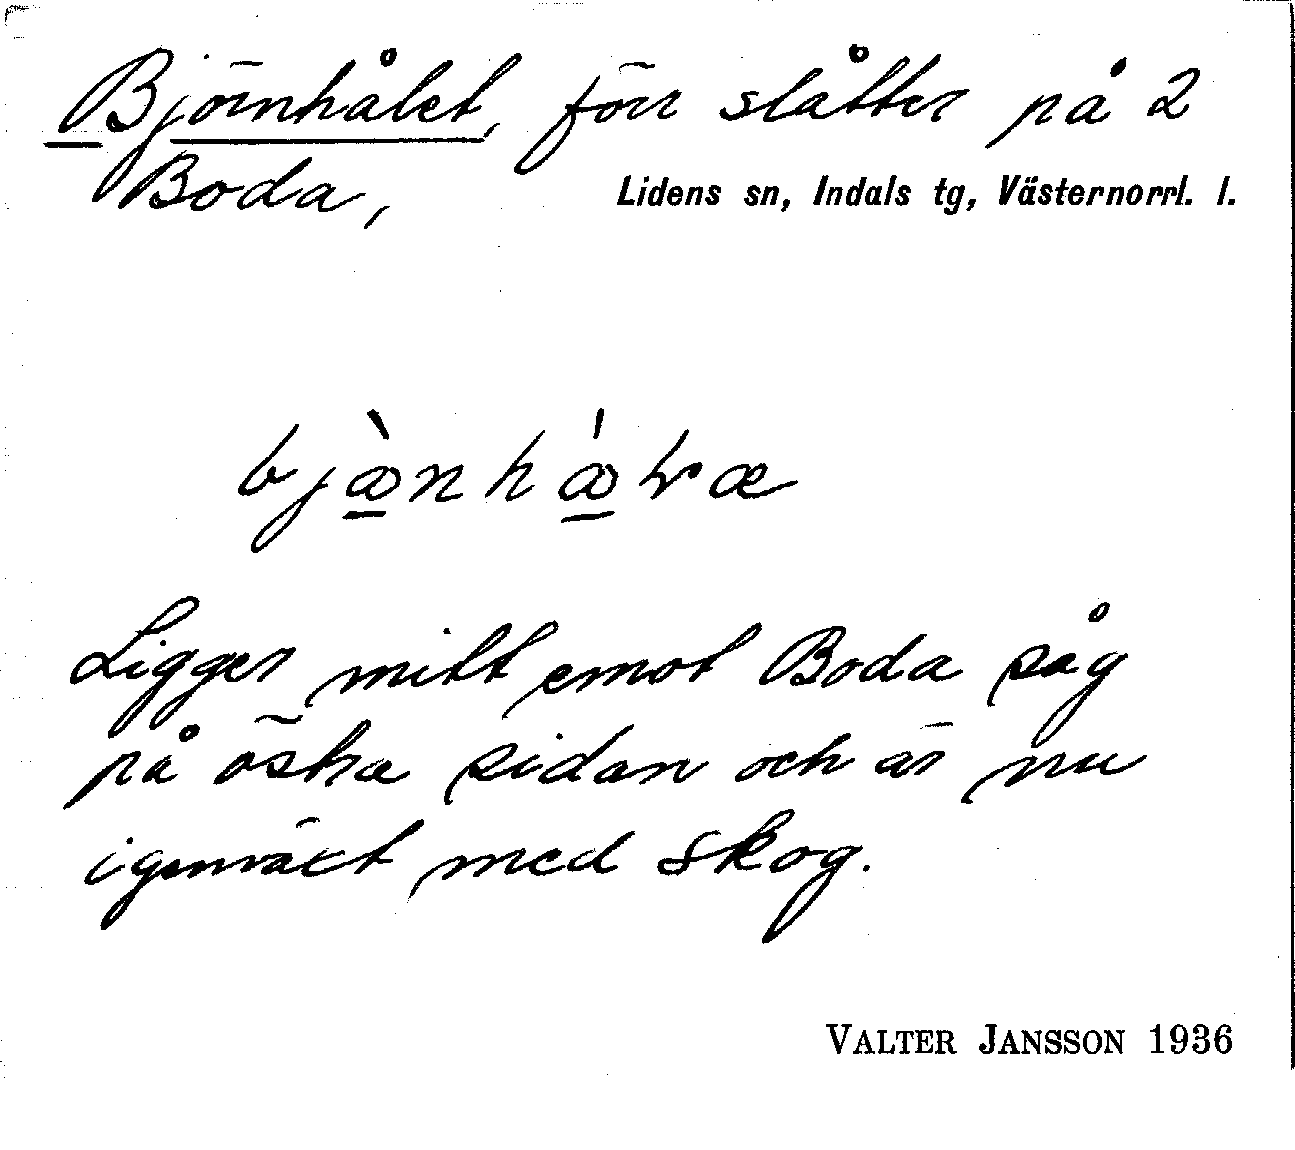 Björnhålet, förr slåtter på 2
Boda, Lidens sn, Indals tg, Västernorrl. l.
Ligger mitt emot Boda såg
på östra sidan och är nu
igenväxt med skog.
VALTER JANSSON 1936